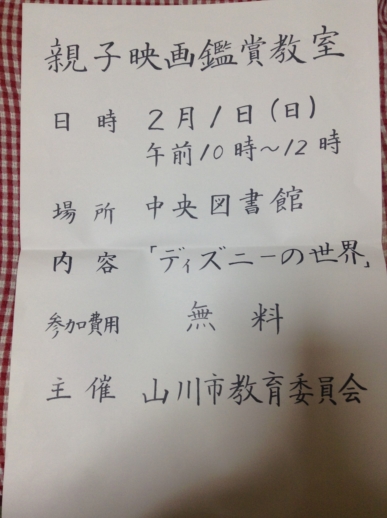 親子映画鑑賞教室
日時 2月1日(日)
午前10時~12時
場所 中央図書館
内容 「ディズニーの世界」
参加費用 無料
主催 山川市教育委員会